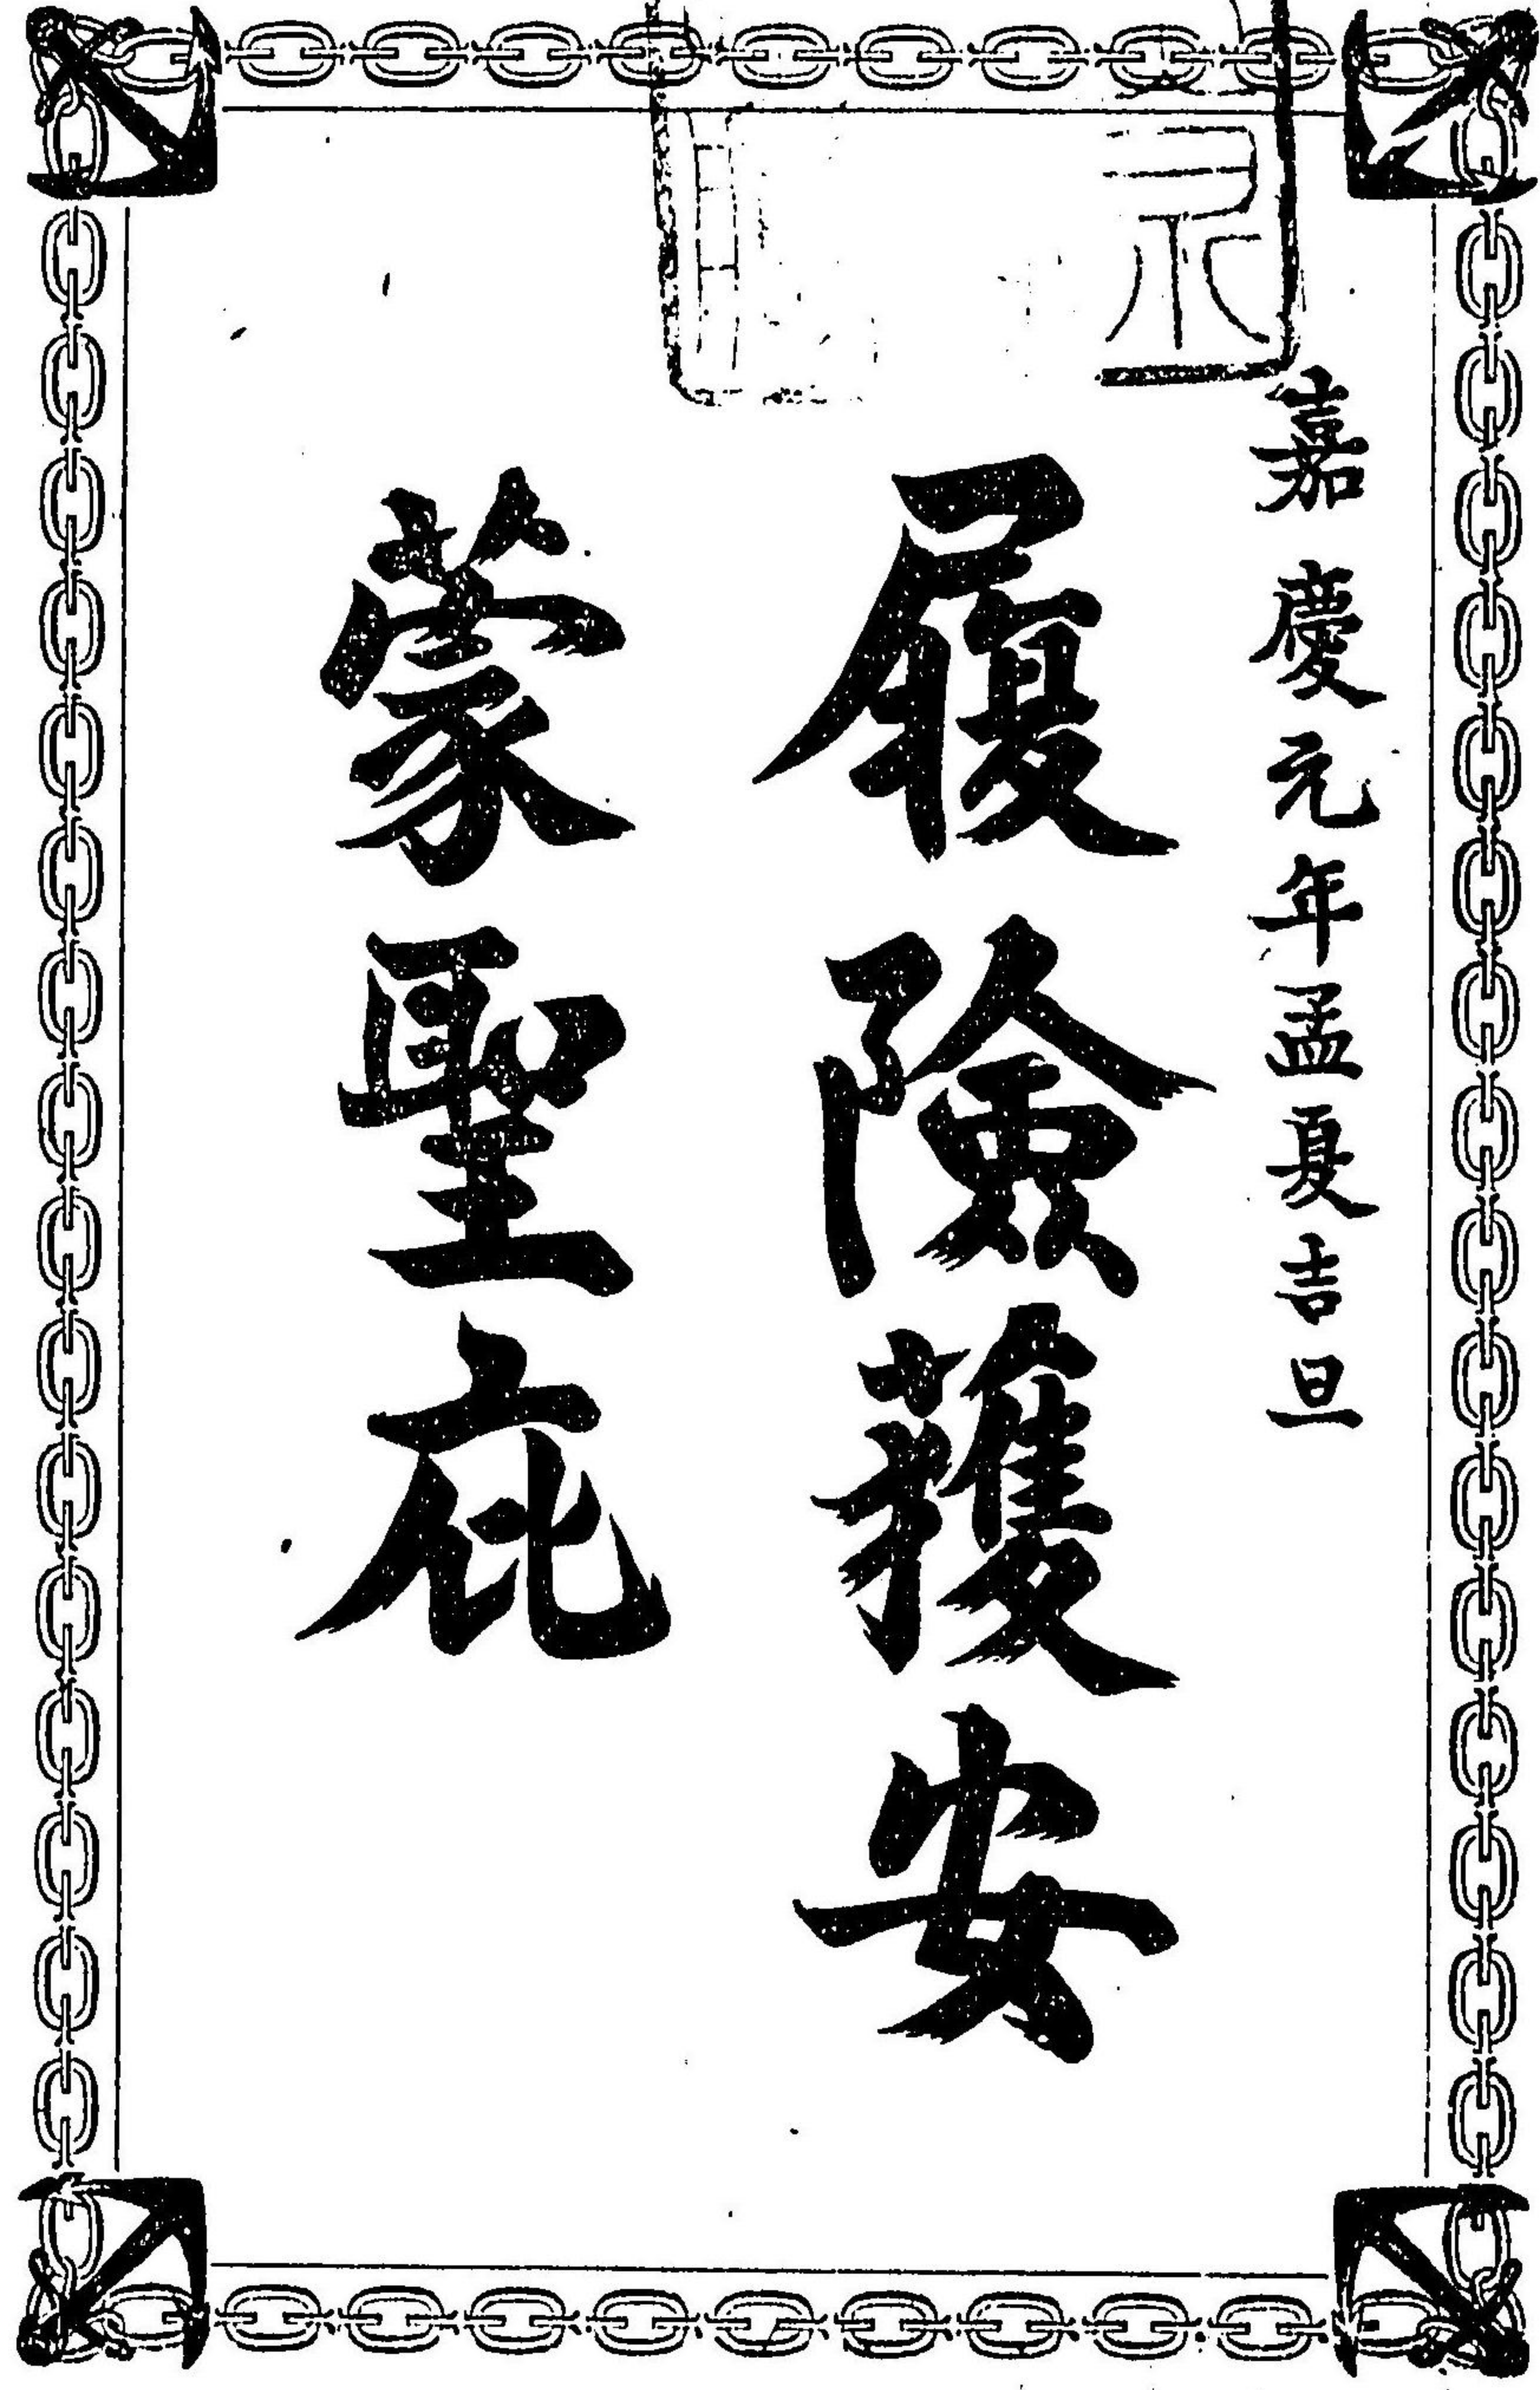 嘉慶元年孟夏吉旦
履險獲安
蒙聖庇